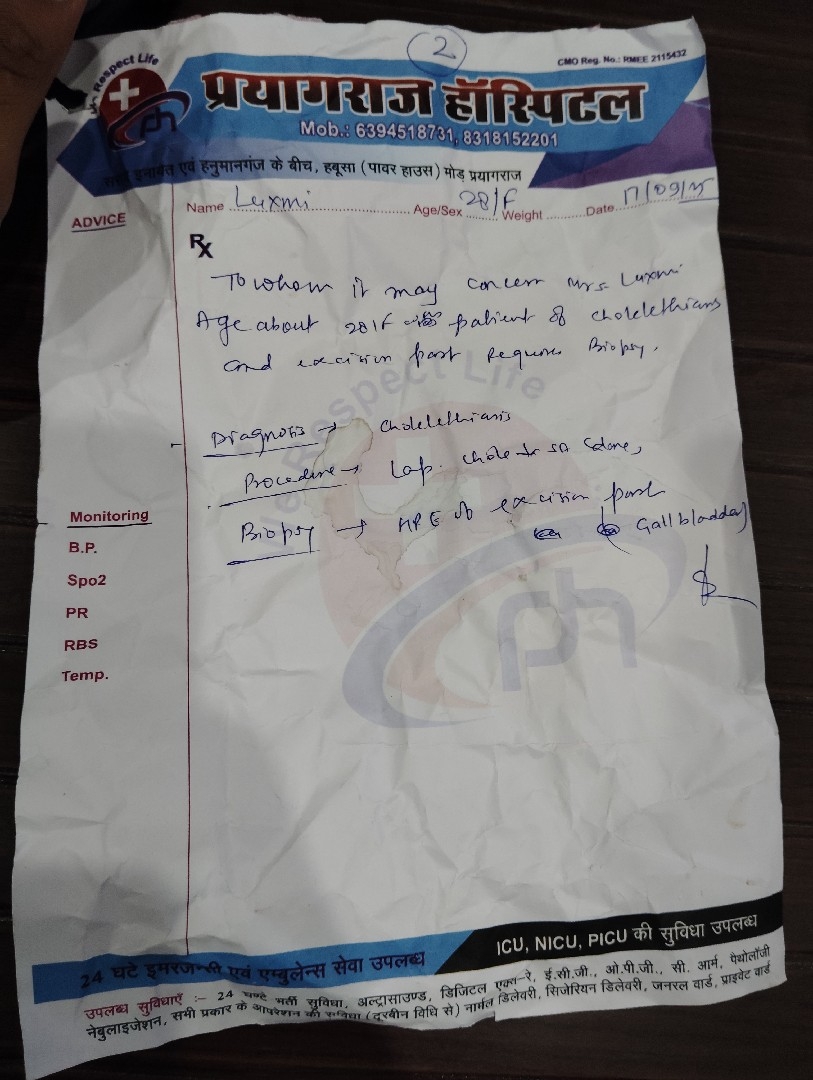 2
CMO Reg. No.: RMEE 2115432
Respect Life
ph
प्रयागराज हॉस्पिटल
Mob.: 6394518731, 8318152201
एवं हनुमानगंज के बीच, हबूसा (पावर हाउस) मोड़ प्रयागराज
ADVICE
Name Luxmi Age/Sex 28/F Weight Date 17/09/25
Rx
To whom it may concern Mrs Luxmi
Age about 28/F patient of cholelethians
and excision part requires Biopsy.
Respect Life
Diagnosis → Cholelethiasis
Procedure → Lap. chole
Biopsy → HPE of excision part
Gallbladder
Monitoring
B.P.
Spo2
PR
RBS
Temp.
ph
24 घंटे इमरजन्सी एवं एम्बुलेन्स सेवा उपलब्ध
ICU, NICU, PICU की सुविधा उपलब्ध
उपलब्ध सुविधाएँ :- 24 घण्टे भर्ती सुविधा, अल्ट्रासाउण्ड, डिजिटल एक्स-रे, ई.सी.जी., ओ.पी.जी., सी. आर्म, पेथोलॉजी
नेबुलाइजेशन, सभी प्रकार के आपरेशन की सुविधा (दूरबीन विधि से) नार्मल डिलेवरी, सिजेरियन डिलेवरी, जनरल वार्ड, प्राइवेट वार्ड